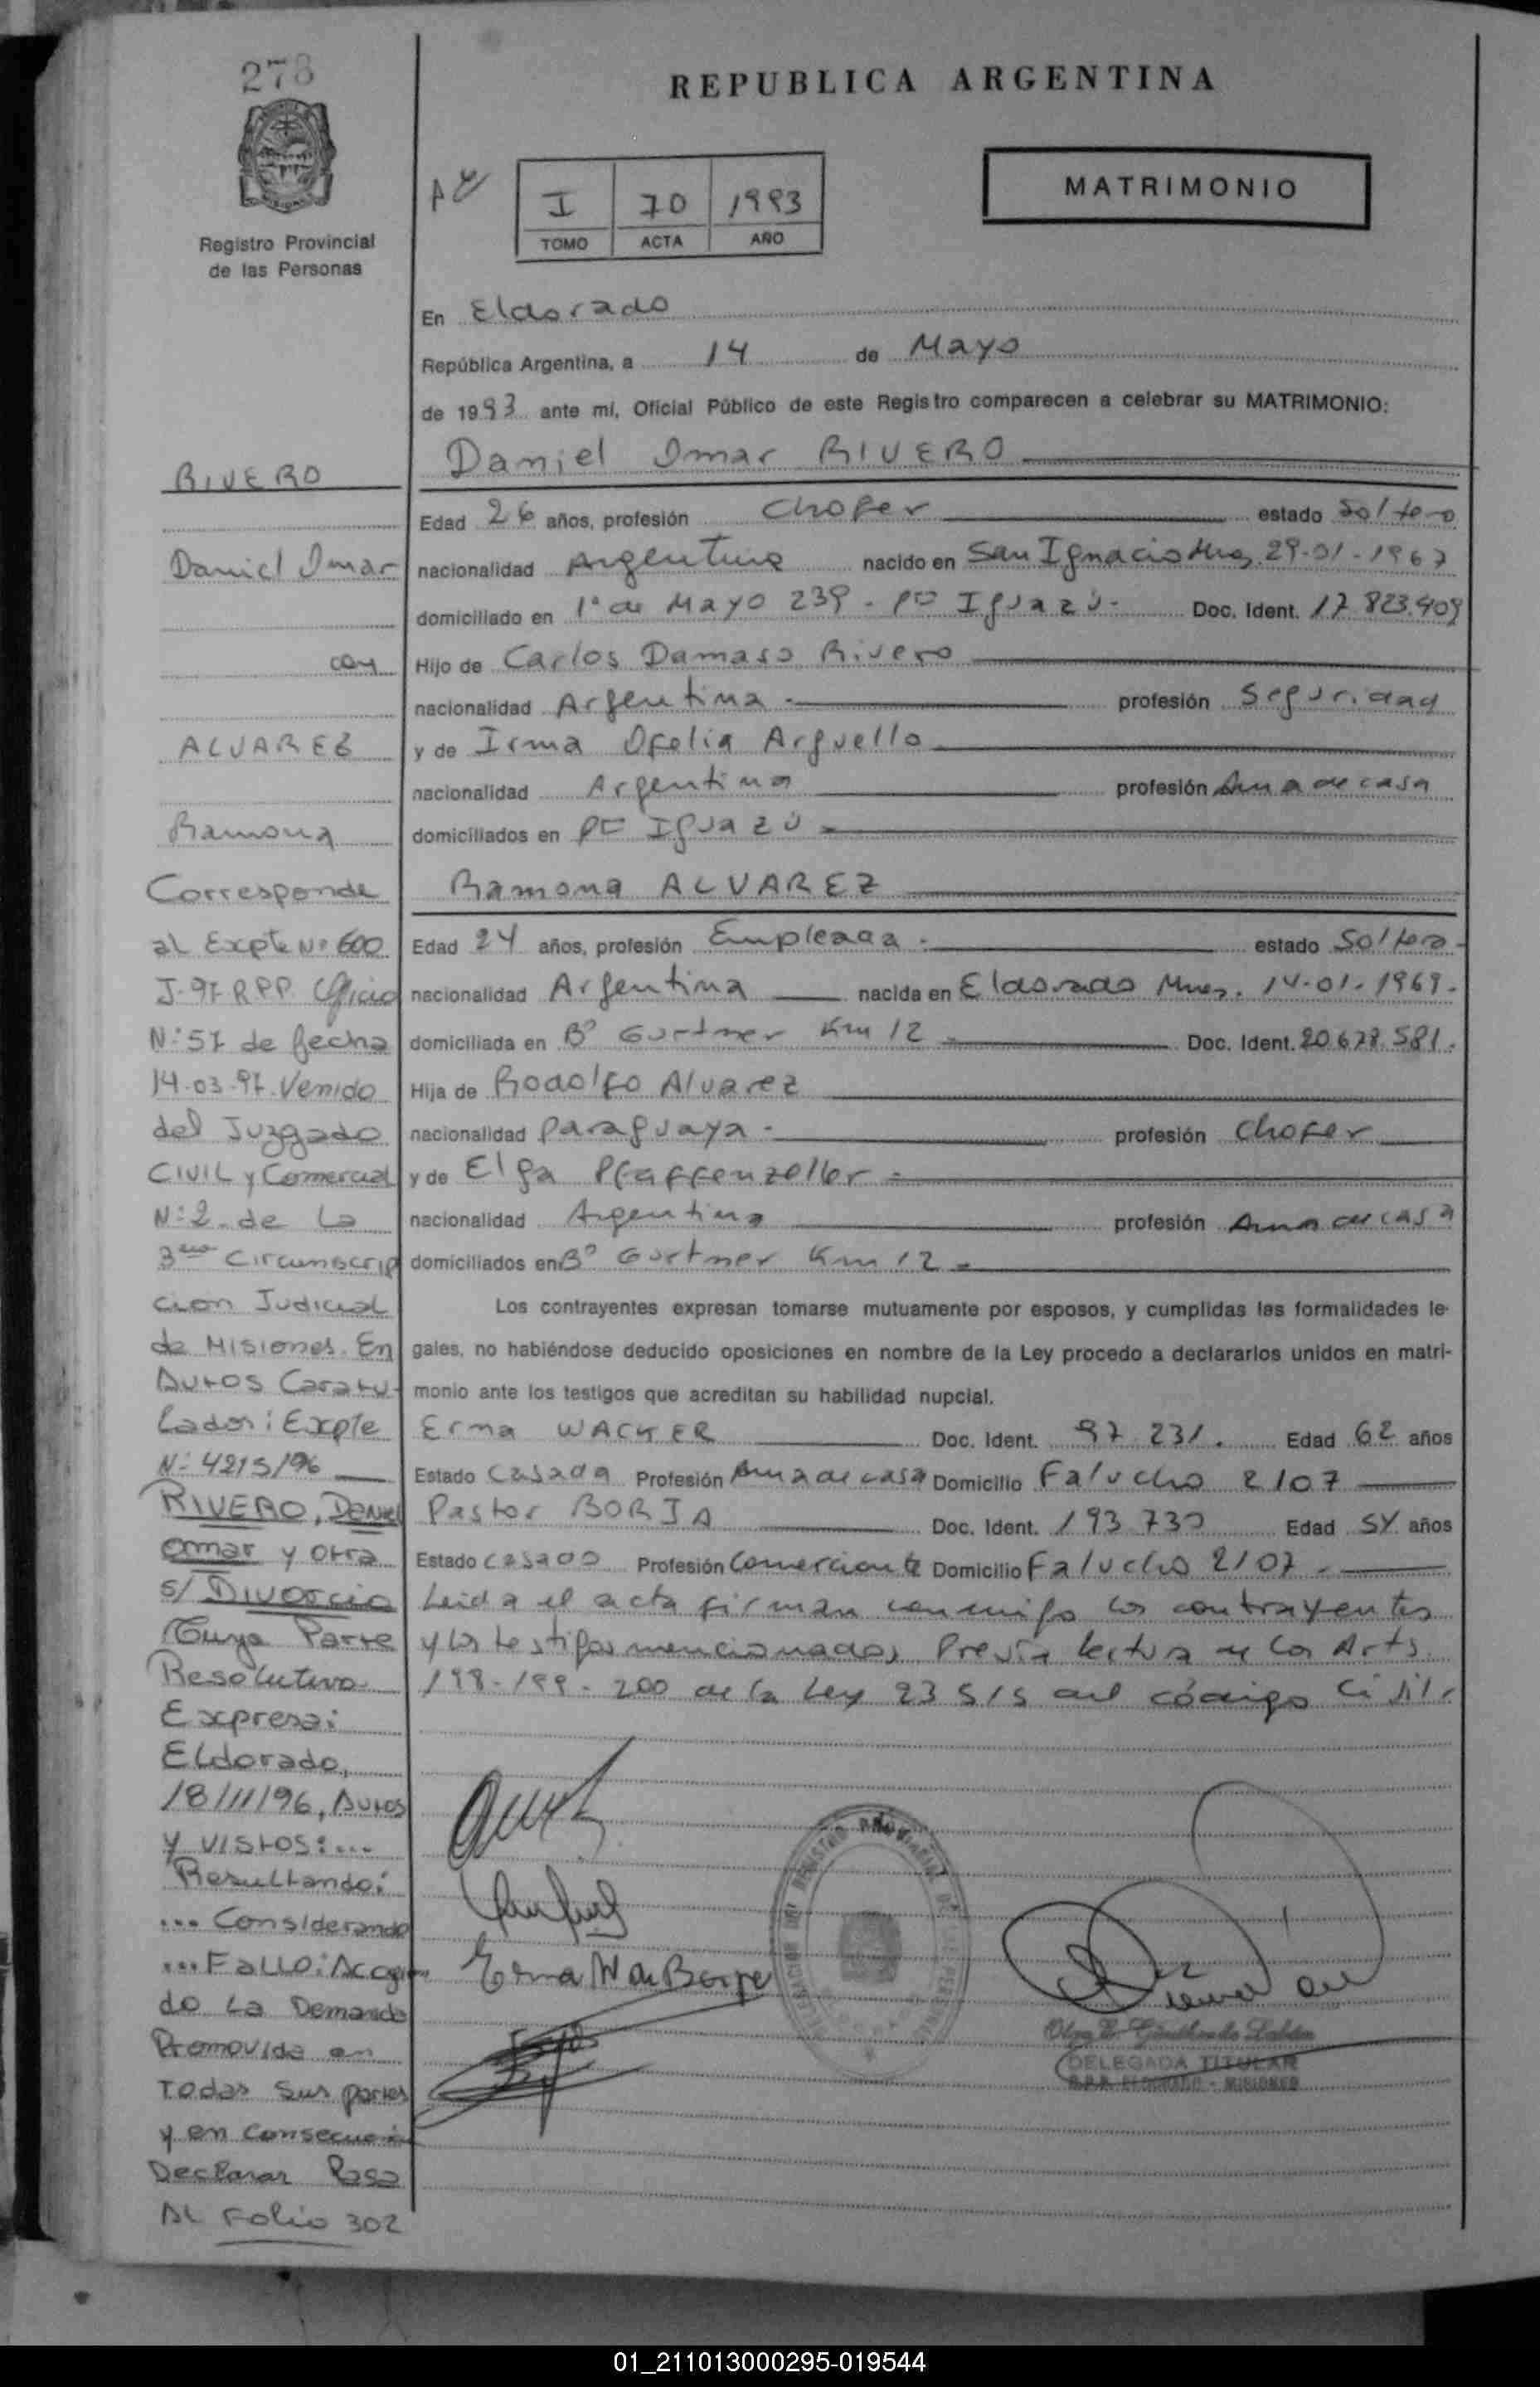 278
REPUBLICA ARGENTINA
MATRIMONIO
I 70 1993
TOMO ACTA AÑO
Registro Provincial
de las Personas
En Eldorado
República Argentina, a 14 de Mayo
de 1993 ante mí, Oficial Público de este Registro comparecen a celebrar su MATRIMONIO:
Daniel Omar RIVERO
Edad 26 años, profesión Chofer estado Soltero
nacionalidad Argentina nacido en San Ignacio Mnes. 29-01-1967
domiciliado en 1º de Mayo 239 - Pto Iguazú - Doc. Ident. 17.823.409
Hijo de Carlos Damaso Rivero
nacionalidad Argentina - profesión Seguridad
y de Irma Ofelia Arguello
nacionalidad Argentina profesión Ama de casa
domiciliados en Pto Iguazú -
Ramona ALVAREZ
Edad 24 años, profesión Empleada - estado Soltera -
nacionalidad Argentina nacida en Eldorado Mnes. 14-01-1969.
domiciliada en Bº Gortner Km 12 - Doc. Ident. 20.678.581.
Hija de Rodolfo Alvarez
nacionalidad Paraguaya - profesión Chofer
y de Elga Pfaffenzeller -
nacionalidad Argentina profesión Ama de casa
domiciliados en Bº Gortner Km 12 -
Los contrayentes expresan tomarse mutuamente por esposos, y cumplidas las formalidades le-
gales, no habiéndose deducido oposiciones en nombre de la Ley procedo a declararlos unidos en matri-
monio ante los testigos que acreditan su habilidad nupcial.
Erma WACKER Doc. Ident. 97.231. Edad 62 años
Estado Casada Profesión Ama de casa Domicilio Falucho 2107
Pastor BORJA Doc. Ident. 193.730 Edad 54 años
Estado Casado Profesión Comerciante Domicilio Falucho 2107 -
Leida el acta firman conmigo los contrayentes
y los testigos mencionados Previa lectura de los Arts.
198-199-200 de la Ley 23515 del código Civil.
RIVERO
Daniel Omar
con
ALVAREZ
Ramona
Corresponde
al Expte Nº 600
J-97 RPP. Oficio
Nº 57 de fecha
14-03-97. Venido
del Juzgado
CIVIL y Comercial
Nº 2. de La
3era Circunscrip
cion Judicial
de Misiones. En
Autos Caratu-
lados: Expte
Nº 4215/96
RIVERO, Daniel
Omar y otra
s/ Divorcio
Cuya Parte
Resolutiva
Expresa:
Eldorado,
18/11/96, Autos
y VISTOS:...
Resultando:
... Considerando
...FALLO: Acogien
do La Demanda
Promovida en
Todas Sus partes
y en Consecuencia
Declarar Pasa
AL Folio 302
Erma W de Borja
DELEGACION DEL REGISTRO PROVINCIAL DE LAS PERSONAS
DELEGADA TITULAR
R.P.P. ELDORADO - MISIONES
01_211013000295-019544